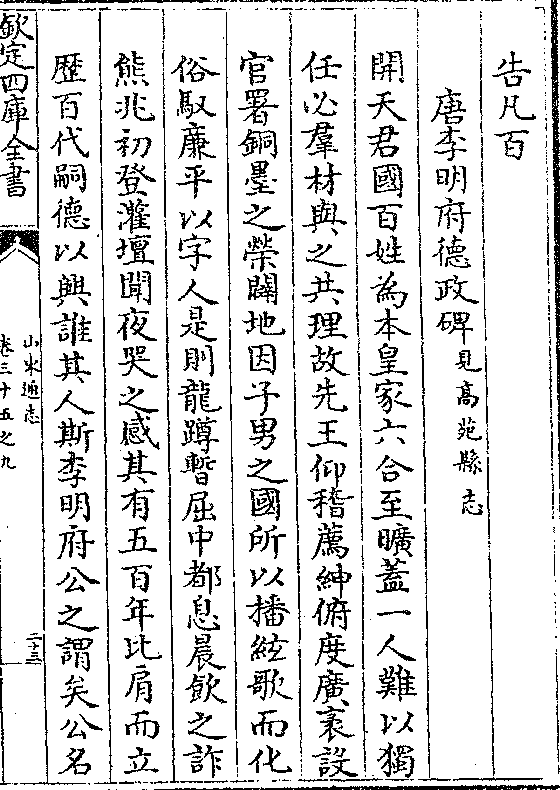 告凡百
唐李明府德政碑見高苑縣志
開天君國百姓為本皇家六合至曠葢一人難以獨
任必羣材與之共理故先王仰稽薦紳俯度廣袤設
官署銅墨之榮闢地因子男之國所以播絃歌而化
俗馭廉平以字人是則龍蹲暫屈中都息晨飲之詐
熊兆初登灌壇聞夜哭之感其有五百年比肩而立
歴百代嗣德以興誰其人斯李明府公之謂矣公名
欽定四庫全書
山東通志
卷三十五之九
二十三